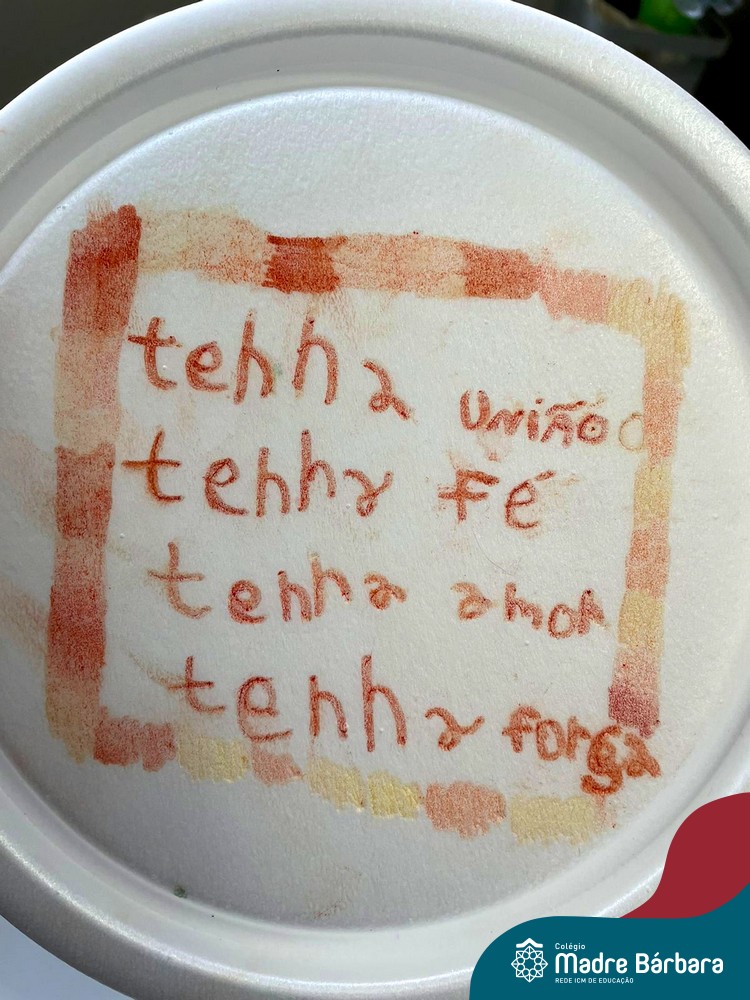 tenha união
tenha fé
tenha amor
tenha força
Colégio
Madre Bárbara
REDE ICM DE EDUCAÇÃO